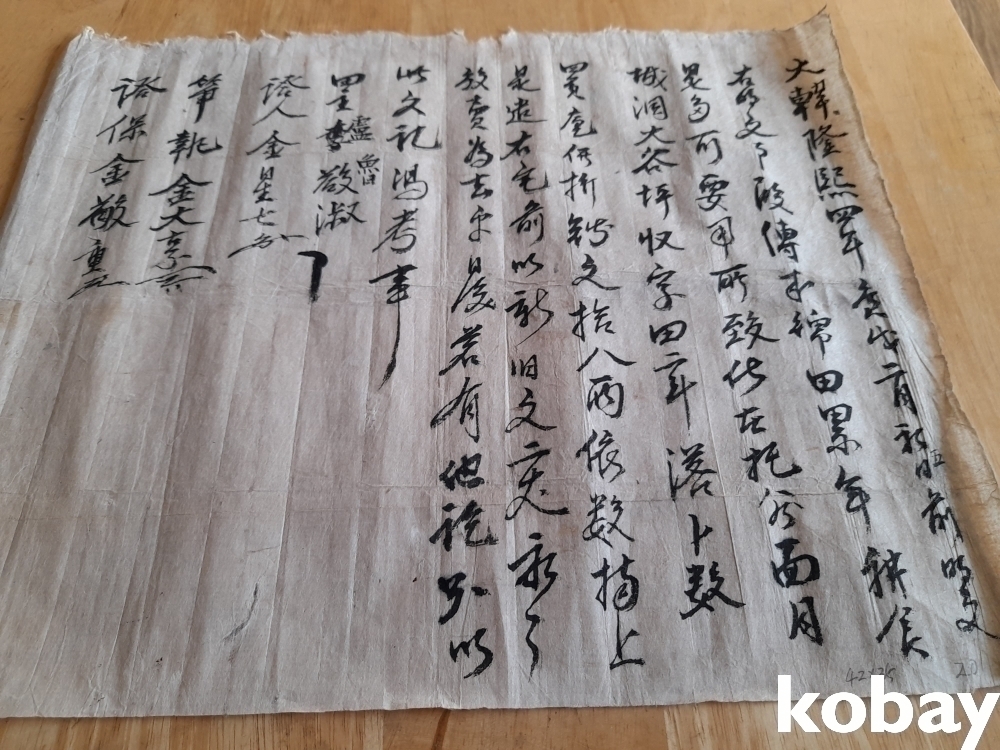 大韓隆熙四年庚戌二月 前明文
右明文事段傳來綿田累年耕食
是多可要用所致伏在托谷面月
城洞大谷坪收字田二斗落卜数
四負庫価折錢文拾八兩依数捧上
是遣右宅前以新旧文二丈永々
放賣爲去乎日後若有他說則以
此文記憑考事
田主 魯敬淑
證人金星七
筆執金大享
證保金敬重
42×35
kobay